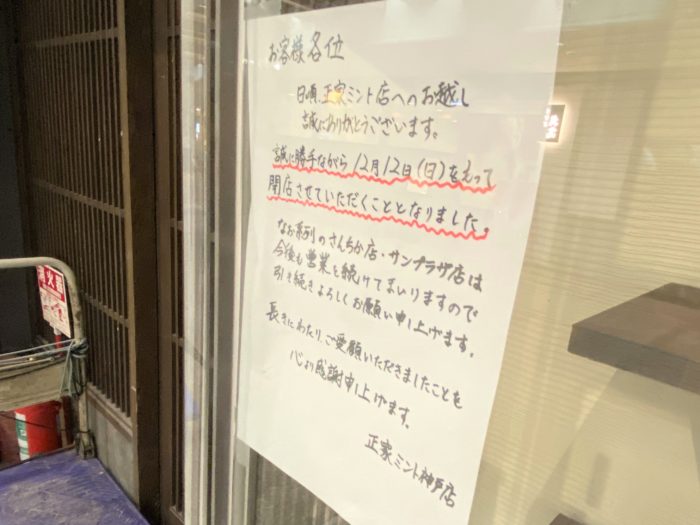 お客様各位
日頃、正家ミント店へのお越し
誠にありがとうございます。
誠に勝手ながら 12月12日(日)をもって
閉店させていただくこととなりました。
なお系列のさんちか店・サンプラザ店は
今後も営業を続けてまいりますので
引き続きよろしくお願い申し上げます。
長きにわたり、ご愛顧いただきましたことを
心より感謝申し上げます。
正家ミント神戸店